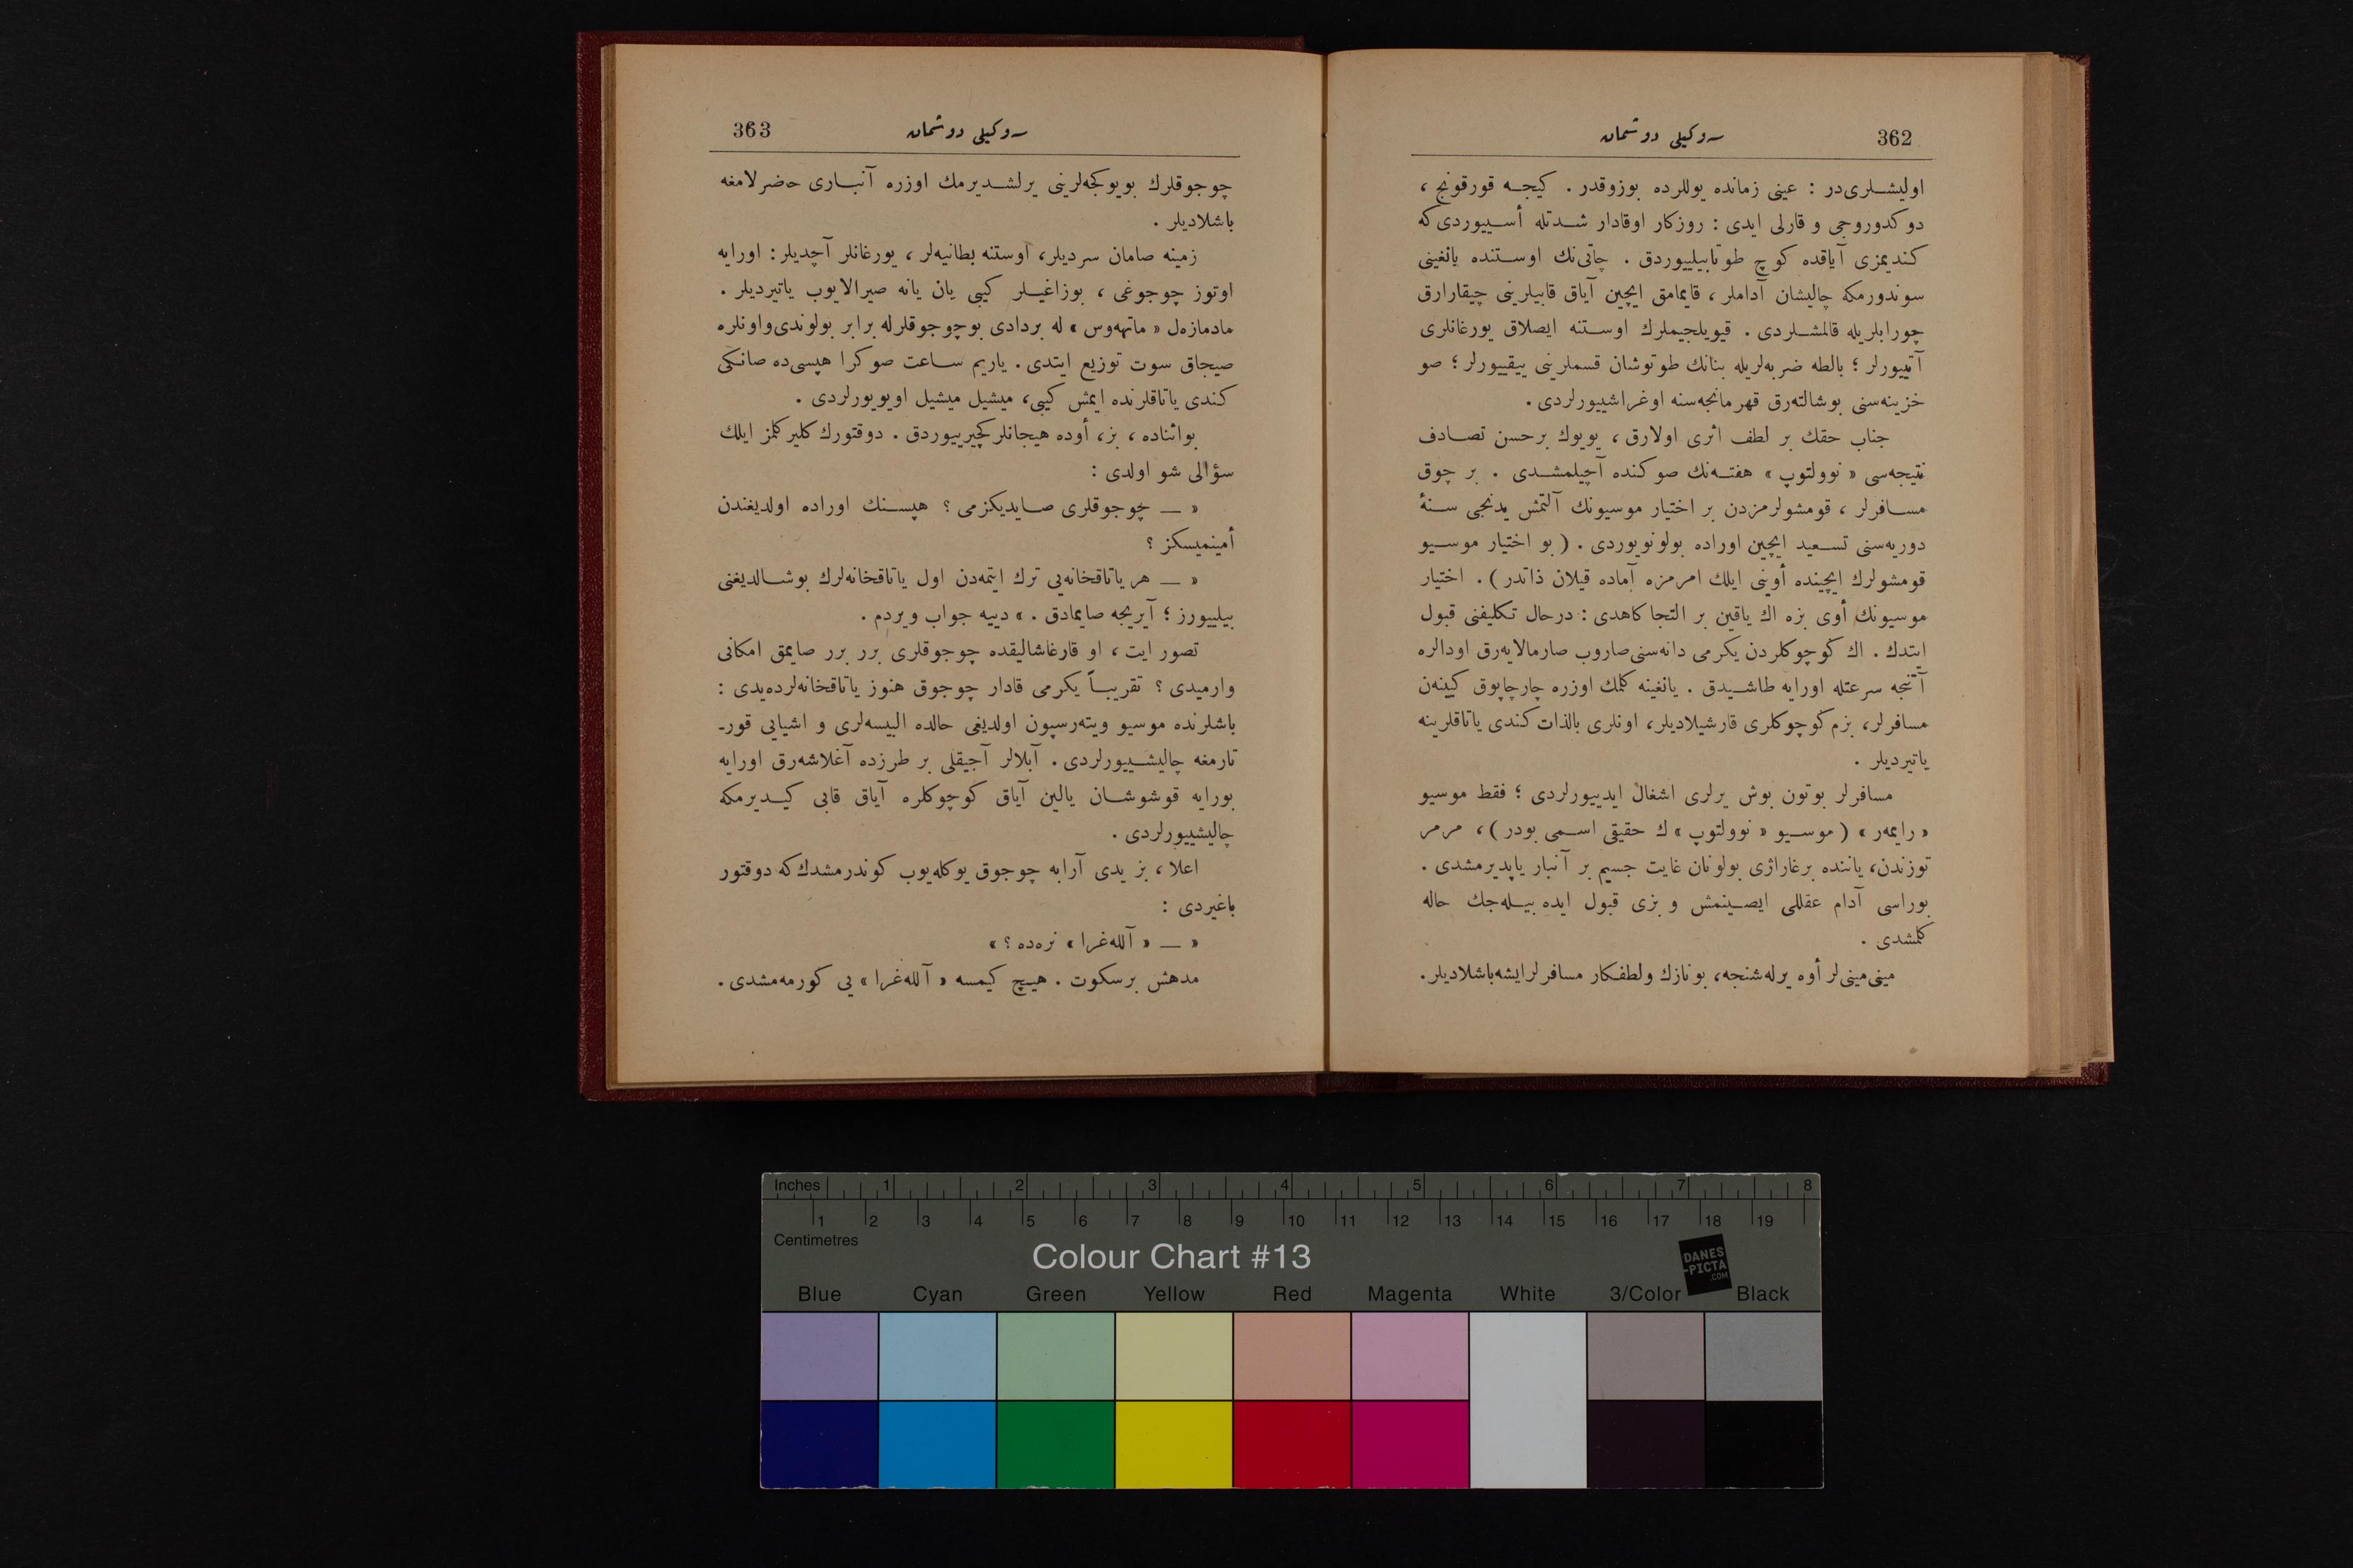 362
سوكيلی دوشمان
اوليشلری‌در : عينی زمانده يوللرده بوزوقدر . كيجه قورقونج ،
دوكدوروجی و قارلی ايدی : روزكار اوقادار شدتله أسييوردی‌كه
كنديمزی آياقده كوچ طوتابيلييوردق . چاتی‌نك اوستنده يانغينی
سوندورمكه چاليشان آداملر ، قايمامق ايچين آياق قابيلرينی چيقارارق
چورابلريله قالمشلردی . قيويلجيملرك اوستنه ايصلاق يورغانلری
آتييورلر ؛ بالطه ضربه‌لريله بنانك طوتوشان قسملرينی ييقييورلر ؛ صو
خزينه‌سنی بوشالته‌رق قهرمانجه‌سنه اوغراشييورلردی .
جناب حقك بر لطف اثری اولارق ، بويوك برحسن تصادف
نتيجه‌سی « نوولتوپ » هفته‌نك صوكنده آچيلمشدی . بر چوق
مسافرلر ، قومشولرمزدن بر اختيار موسيونك آلتمش يدنجی سنهٔ
دوريه‌سنی تسعيد ايچين اوراده بولونويوردی . ( بو اختيار موسيو
قومشولرك ايچينده أوينی ايلك امرمزه آماده قيلان ذاتدر ) . اختيار
موسيونك أوی بزه اك ياقين بر التجاكاهدی : درحال تكليفنی قبول
ايتدك . اك كوچوكلردن يكرمی دانه‌سنی صاروب صارمالايه‌رق اودالره
آتنجه سرعتله اورايه طاشيدق . يانغينه كلمك اوزره چارچاپوق كيينه‌ن
مسافرلر، بزم كوچوكلری قارشيلاديلر، اونلری بالذات كندی ياتاقلرينه
ياتيرديلر .
مسافرلر بوتون بوش يرلری اشغال ايدييورلردی ؛ فقط موسيو
« رايمه‌ر » ( موسيو « نوولتوپ » ك حقيقی اسمی بودر ) ، مرمر
توزندن، ياننده برغاراژی بولونان غايت جسيم بر آنبار ياپديرمشدی .
بوراسی آدام عقللی ايصينمش و بزی قبول ايده بيله‌جك حاله
كلمشدی .
مينی‌مينی‌لر أوه يرله‌شنجه، بونازك ولطفكار مسافرلرايشه‌باشلاديلر.
363
سوكيلی دوشمان
چوجوقلرك بويوكجه‌لرينی يرلشديرمك اوزره آنباری حاضرلامغه
باشلاديلر .
زمينه صامان سرديلر، اوستنه بطانيه‌لر ، يورغانلر آچديلر : اورايه
اوتوز چوجوغی ، بوزاغيلر كيبی يان يانه صيرالايوب ياتيرديلر .
مادمازه‌ل « ماتهه‌وس » له بردادی بوچوجوقلرله برابر بولوندی‌واونلره
صيجاق سوت توزيع ايتدی . ياريم ساعت صوكرا هپسی‌ده صانكی
كندی ياتاقلرنده ايمش كيبی، ميشيل ميشيل اويويورلردی .
بواثناده ، بز، أوده هيجانلركچيرييوردق . دوقتورك كليركلمز ايلك
سؤالی شو اولدی :
« — چوجوقلری صايديكزمی ؟ هپسنك اوراده اولديغندن
أمينميسكز ؟
« — هر ياتاقخانه‌يی ترك ايتمه‌دن اول ياتاقخانه‌لرك بوشالديغنی
بيلييورز ؛ آيريجه صايمادق . » دييه جواب ويردم .
تصور ايت ، او قارغاشاليقده چوجوقلری برر برر صايمق امكانی
وارميدی ؟ تقريباً يكرمی قادار چوجوق هنوز ياتاقخانه‌لرده‌يدی :
باشلرنده موسيو ويته‌رسپون اولديغی حالده البيسه‌لری و اشيايی قور-
تارمغه چاليشييورلردی . آبلالر آجيقلی بر طرزده آغلاشه‌رق اورايه
بورايه قوشوشان يالين آياق كوچوكلره آياق قابی كيديرمكه
چاليشييورلردی .
اعلا ، بز يدی آرابه چوجوق يوكله‌يوب كوندرمشدك‌كه دوقتور
باغيردی :
« — « آلله‌غرا » نره‌ده ؟ »
مدهش برسكوت . هيچ كيمسه « آلله‌غرا » يی كورمه‌مشدی .
Inches 1 2 3 4 5 6 7 8
1 2 3 4 5 6 7 8 9 10 11 12 13 14 15 16 17 18 19
Centimetres
Colour Chart #13
DANES
-PICTA
.COM
Blue Cyan Green Yellow Red Magenta White 3/Color Black